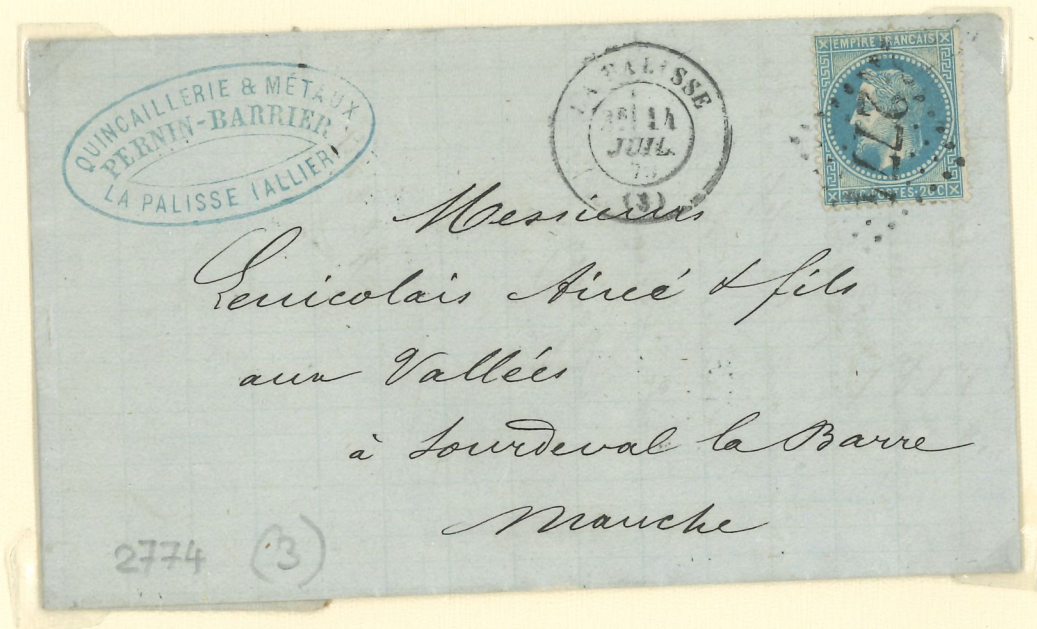 QUINCAILLERIE & MÉTAUX
PERNIN-BARRIER
LA PALISSE (ALLIER)
LA PALISSE
14
JUIL.
(3)
EMPIRE FRANÇAIS
20C
Messieurs
Lenicolais Aimé & fils
aux Vallées
à Sourdeval la Barre
Manche
2774 (3)